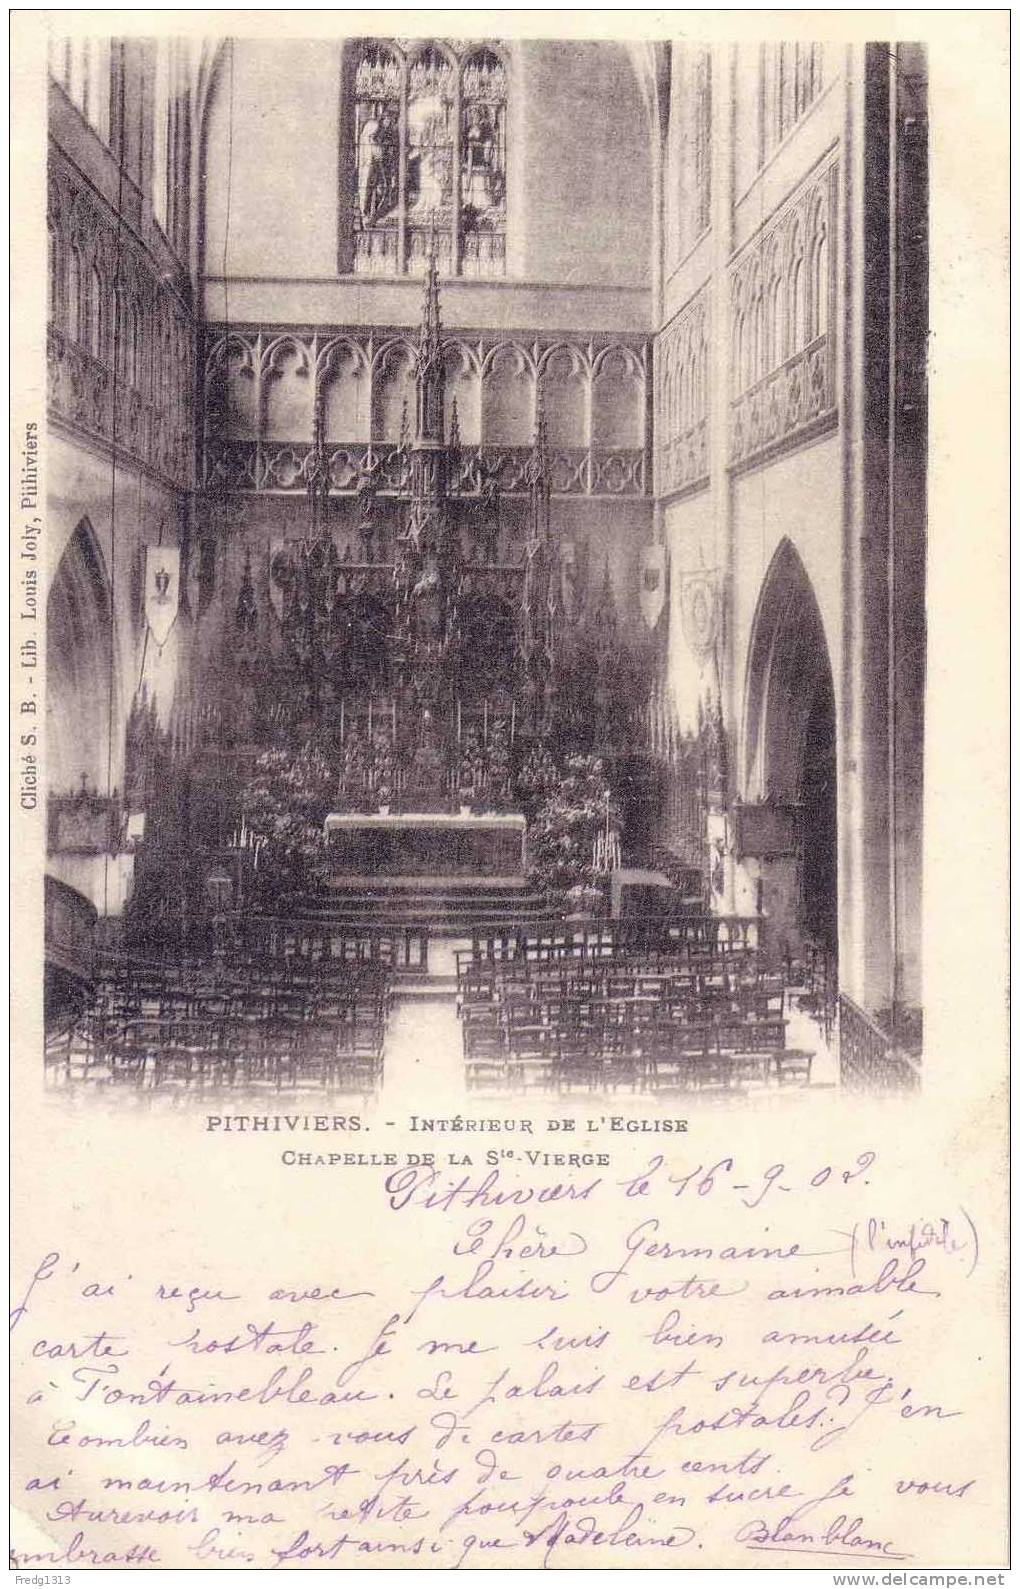 Cliché S. B. - Lib. Louis Joly, Pithiviers
PITHIVIERS. - INTÉRIEUR DE L'EGLISE
CHAPELLE DE LA Ste-VIERGE
Pithiviers le 16-9-02.
Chère Germaine (l'infidèle)
J'ai reçu avec plaisir votre aimable
carte postale. Je me suis bien amusée
à Fontainebleau. Le palais est superbe.
Combien avez-vous de cartes postales? J'en
ai maintenant près de quatre cents.
Aurevoir ma petite poupoule en sucre je vous
embrasse bien fort ainsi que Madeleine. Blanblanc
Fredg1313
DELCAMPE.NET